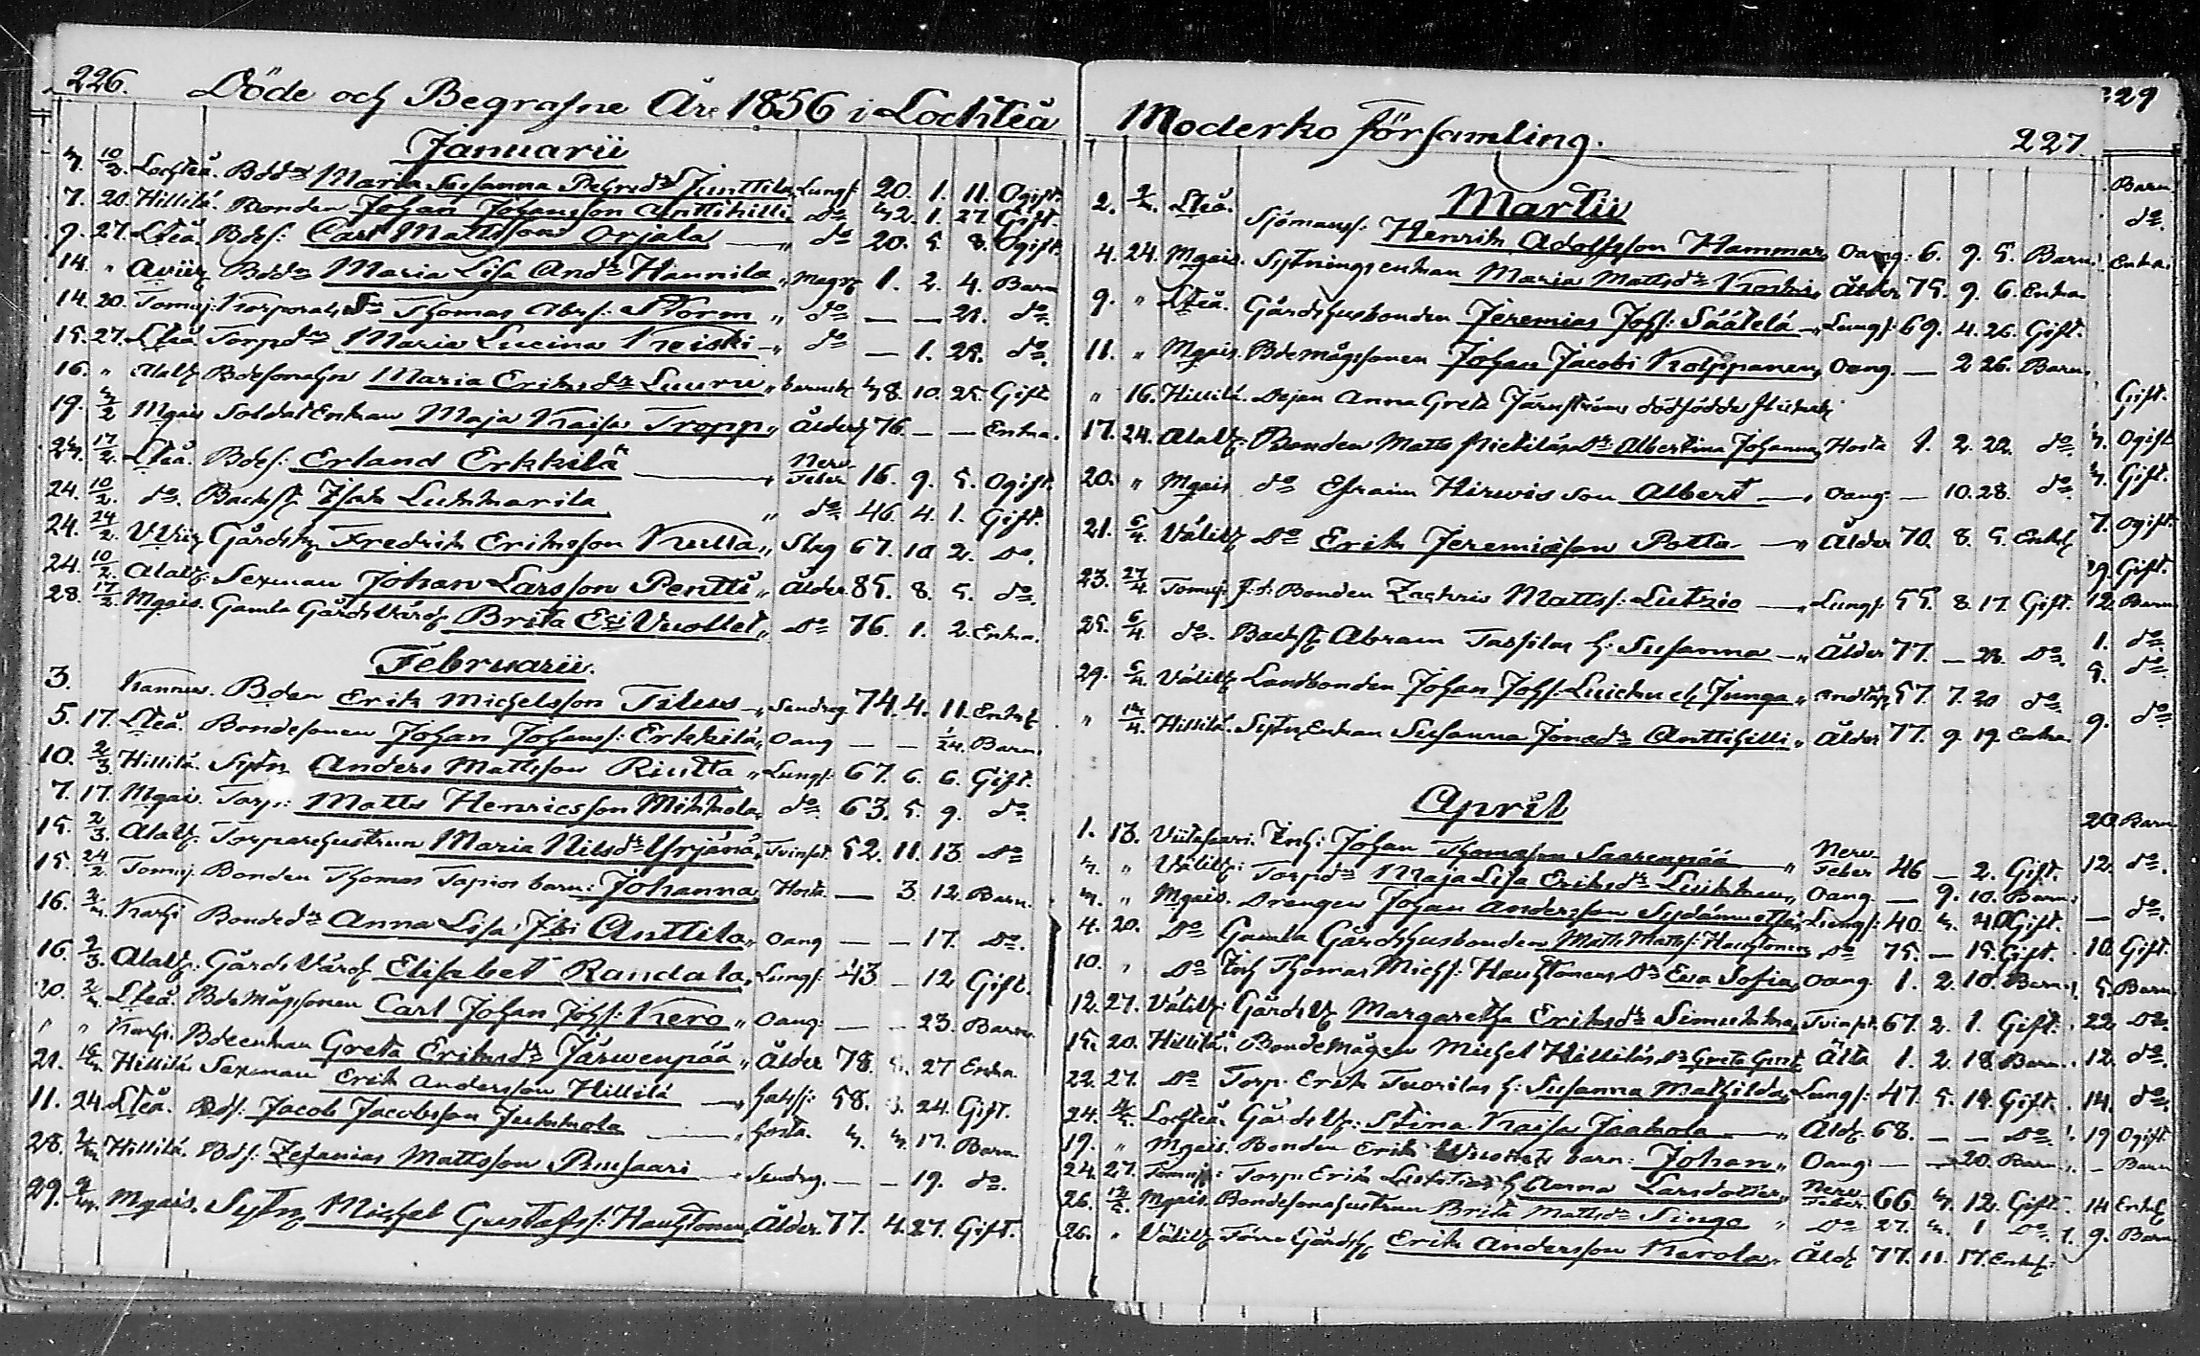 226. Döde och Begrafne År 1856 i Lochteå
Januarii
4. 10/2 Lochteå. Bdedr Maria Susanna Junttila Lungs: 20. 1. 11. Ogift.
7. 20. Hillilä. Bonden Johan Johansson Anttihilli do 42. 1. 27. Gift.
9. 27. Lteå. Bdes: Carl Mattsson Orjala do 20. 5. 8. Ogift.
14. " Bdedr Maria Lisa Andr Hannila " Magr 1. 2. 4. Barn
14. 20. Tomuj. Korporals Sn Thomas Abrs: Storm " do — — 21. do.
15. 27. Lteå Torpdr Maria Lucina Keiski " do — 1. 25. do.
16. " Alalz Bdesonahu Maria Eriksdr Luuru " barnsb 48. 10. 25. Gift.
19. 4/2 Mgais Soldat Enkan Maja Kaisa Tropp " Älders 76. — — Enka.
24. 17/2 Lteå. Bdes: Erland Erkkilä " Nerv Feber 16. 9. 5. Ogift
24. 10/2. do. Backst. Isak Lukkarila " do 46. 4. 1. Gift.
24. 24/2. Gårdsh Fredrik Eriksson Kulla " Slag 67. 10 2. Do.
24. 10/2. Alalz: Sexman Johan Larsson Pentti " Ålder 85. 8. 5. do.
28. 17/2. Mgais. Gamla Gårds Värdf Brita Eri Vuollet " Do 76. 1. 2. Enka.
Februarii.
3. Kannus. Bden Erik Michelsson Tilus " Sendrag 74. 4. 11. Enkl
5. 17. Lteå. Bondesonen Johan Johans: Erkkilä " Oang — — 1/24. Barn.
10. 2/3 Hillilä. Sytn Anders Mattsson Riutta " Lungs 67. 6. 6. Gift.
7. 17. Mgai. Torp: Matts Henricsson Mikkola " do. 63. 5. 9. do
15. 2/3. Alalz. Torparehustrun Maria Nilsdr Yrjänä " Tvinsot. 52. 11. 13 Do
15. 24/2 Tomuj. Bonden Thomas Tapios barn: Johanna Hosta — 3. 12. Barn.
16. 2/3. Karhi Bondedr Anna Lisa Jbi Anttila " Oang — — 17. Do.
16. 2/3. Alalz. Gårds Värdf Elisabet Randala " Lungs: 43 — 12 Gift.
20. 2/3. Lteå. Bde Mågssonen Carl Johan Johs: Kero " Oang: — — 23. Barn.
" " Karhi. Bdeenkan Greta Eriksdr Järwenpää " Ålder 78. 5. 27 Enka.
21. Hillilä Sexman Erik Andersson Hillilä " 58. 3. 24. Gift.
11. 24. Lteå. Bds: Jacob Jacobsson Junkkola " hosta. 4. 4. 17. Barn
28. Hillilä. Bds: Zefanias Mattsson Pensaari " Sendrag. — — 19. do.
29. Mgais. Sytn Michel Gustafs: Hauhtonen " Ålder. 77. 4. 27. Gift.
Moderko Församling. 227.
Martii
2. Lteå. Sjömans: Henrik Adolfsson Hammar " Oang: 6. 9. 5. Barn.
4. 24. Mgais. Sytningsenkan Maria Mattsdr Koski " Ålder 75. 9. 6. Enka
9. " Lteå. Gårdshusbonden Jeremias Johs: Säätelä " Lungs: 69. 4. 26. Gift.
11. " Mgais. Bdemågssonen Johan Jacobi Kolppanen " Oang. — 2 26. Barn.
" 16. Hillilä. Pejan Anna Greta Järnströms dödfödde
17. 24. Alalz. Bonden Matts Pietiläs Dr Albertina Johanna " Hosta 1. 2. 22. do.
20. " Mgais do Efraim Hirwis son Albert " Oang: — 10. 28. do.
21. 6/4. Välilz Do Erik Jeremiasson Potta " Ålder 70. 8. 5. Enkl
23. 27/4. Tomuj. F.d: Bonden Zachris Matts: Lutzio " Lungs: 55. 8. 17. Gift.
25. 6/4. do. Backst Abram Tassilas h: Susanna " Ålder 77. — 28. Do.
29. 6/4. Välilz Landbonden Johan Johs: Luikku el: Junga " 57. 7. 20 do.
" Hillilä. Sytn Enkan Susanna Jonædr Anttihilli " Ålder 77. 9. 19. Enka.
April
1. 13. Viitasaari. Inh: Johan Thomasson Saarenpää " Nerv Feber 46 — 2. Gift.
4. " Välilz: Torpdr Maja Lisa Eriksdr Luikku " Oang — 9. 10. Barn.
4. " Mgais. Drengen Johan Andersson Sydänmetsä " Lungs: 40. 4. 4. Ogift.
4. 20. Do Gamla Gårdshusbonden Matts Matts: Hauhtonen " Do 75. — 15. Gift.
10. " Do Inh Thomas Michs: Hauhtonens Dr Eva Sofia " Oang. 1. 2. 10. Barn.
12. 27. Välilz: Gårds Vf Margaretha Eriksdr Simukka " Tvinsot. 67. 2. 1. Gift.
15. 20. Hillilä. Bonde Mågen Michel Hilliläs Dr Greta Älta 1. 2. 18. Barn.
22. 27. Do Torp. Erik Tuorilas h: Susanna Mathilda " Lungs: 47. 5. 14. Gift.
24. Lochteå. Gårds Vf: Stina Kaisa Jaakola " Åld: 68. — — Do.
19. " Mgais. Bonden Erik Vuollets barn: Johan " Oang: — — 20. Barn.
24. 27. Tomuj: Torp: Erik h: Anna Larsdotter " Nerv Feber. 66. 4. 12. Gift.
26. Mgais. Bondesonahustrun Brita Mattsdr Singo " Do 27. 4. 1 Do.
26. " Välilz Förre Gårdsh Erik Andersson Kerola " Åld 77. 11. 17. Enkl:
229
Barn
do.
Enka
Gift.
4. Ogift
4. Gift.
7. Ogift.
29. Gift.
12. Barn
1. do.
5. do.
9. do.
20. Barn
12. do.
— do.
10. Gift.
5. Barn
22. Do.
12. do.
14. do.
19 Ogift
— Barn
14 Enkl
9. Barn